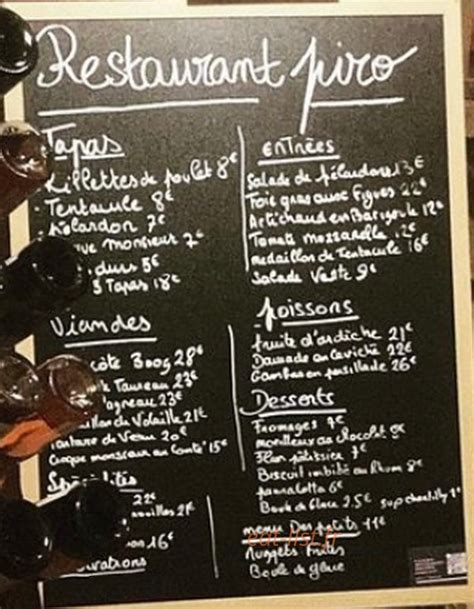 Restaurant piro
Tapas
Rillettes de poulet 8€
Tentacule 8€
Pelardon 7€
que monsieur 7€
durs 5€
3 Tapas 18€
Viandes
côte 300g 28€
Taureau 23€
agneau 23€
de Volaille 21€
de Veau 20€
Croque monsieur au Conté 15€
Spécialités
22€
ouilles 20€
on 16€
entrées
Salade de pélardons 13€
Foie gras aux Figues 22€
Artichaud en Barigoule 12€
Tomate mozzarelle 12€
medaillon de Tentacule 16€
Salade Verte 9€
poissons
truite d'ardèche 21€
Daurade en caviche 22€
Gambas en persillade 26€
Desserts
Fromages 9€
moelleux au chocolat 9€
Flan pâtissier 7€
Biscuit imbibé au Rhum 8€
pannalotta 6€
Boule de Glace 2.5€ sup chantilly 1€
menu Des petits 11€
eat-list.fr
Nuggets frites
Boule de glace